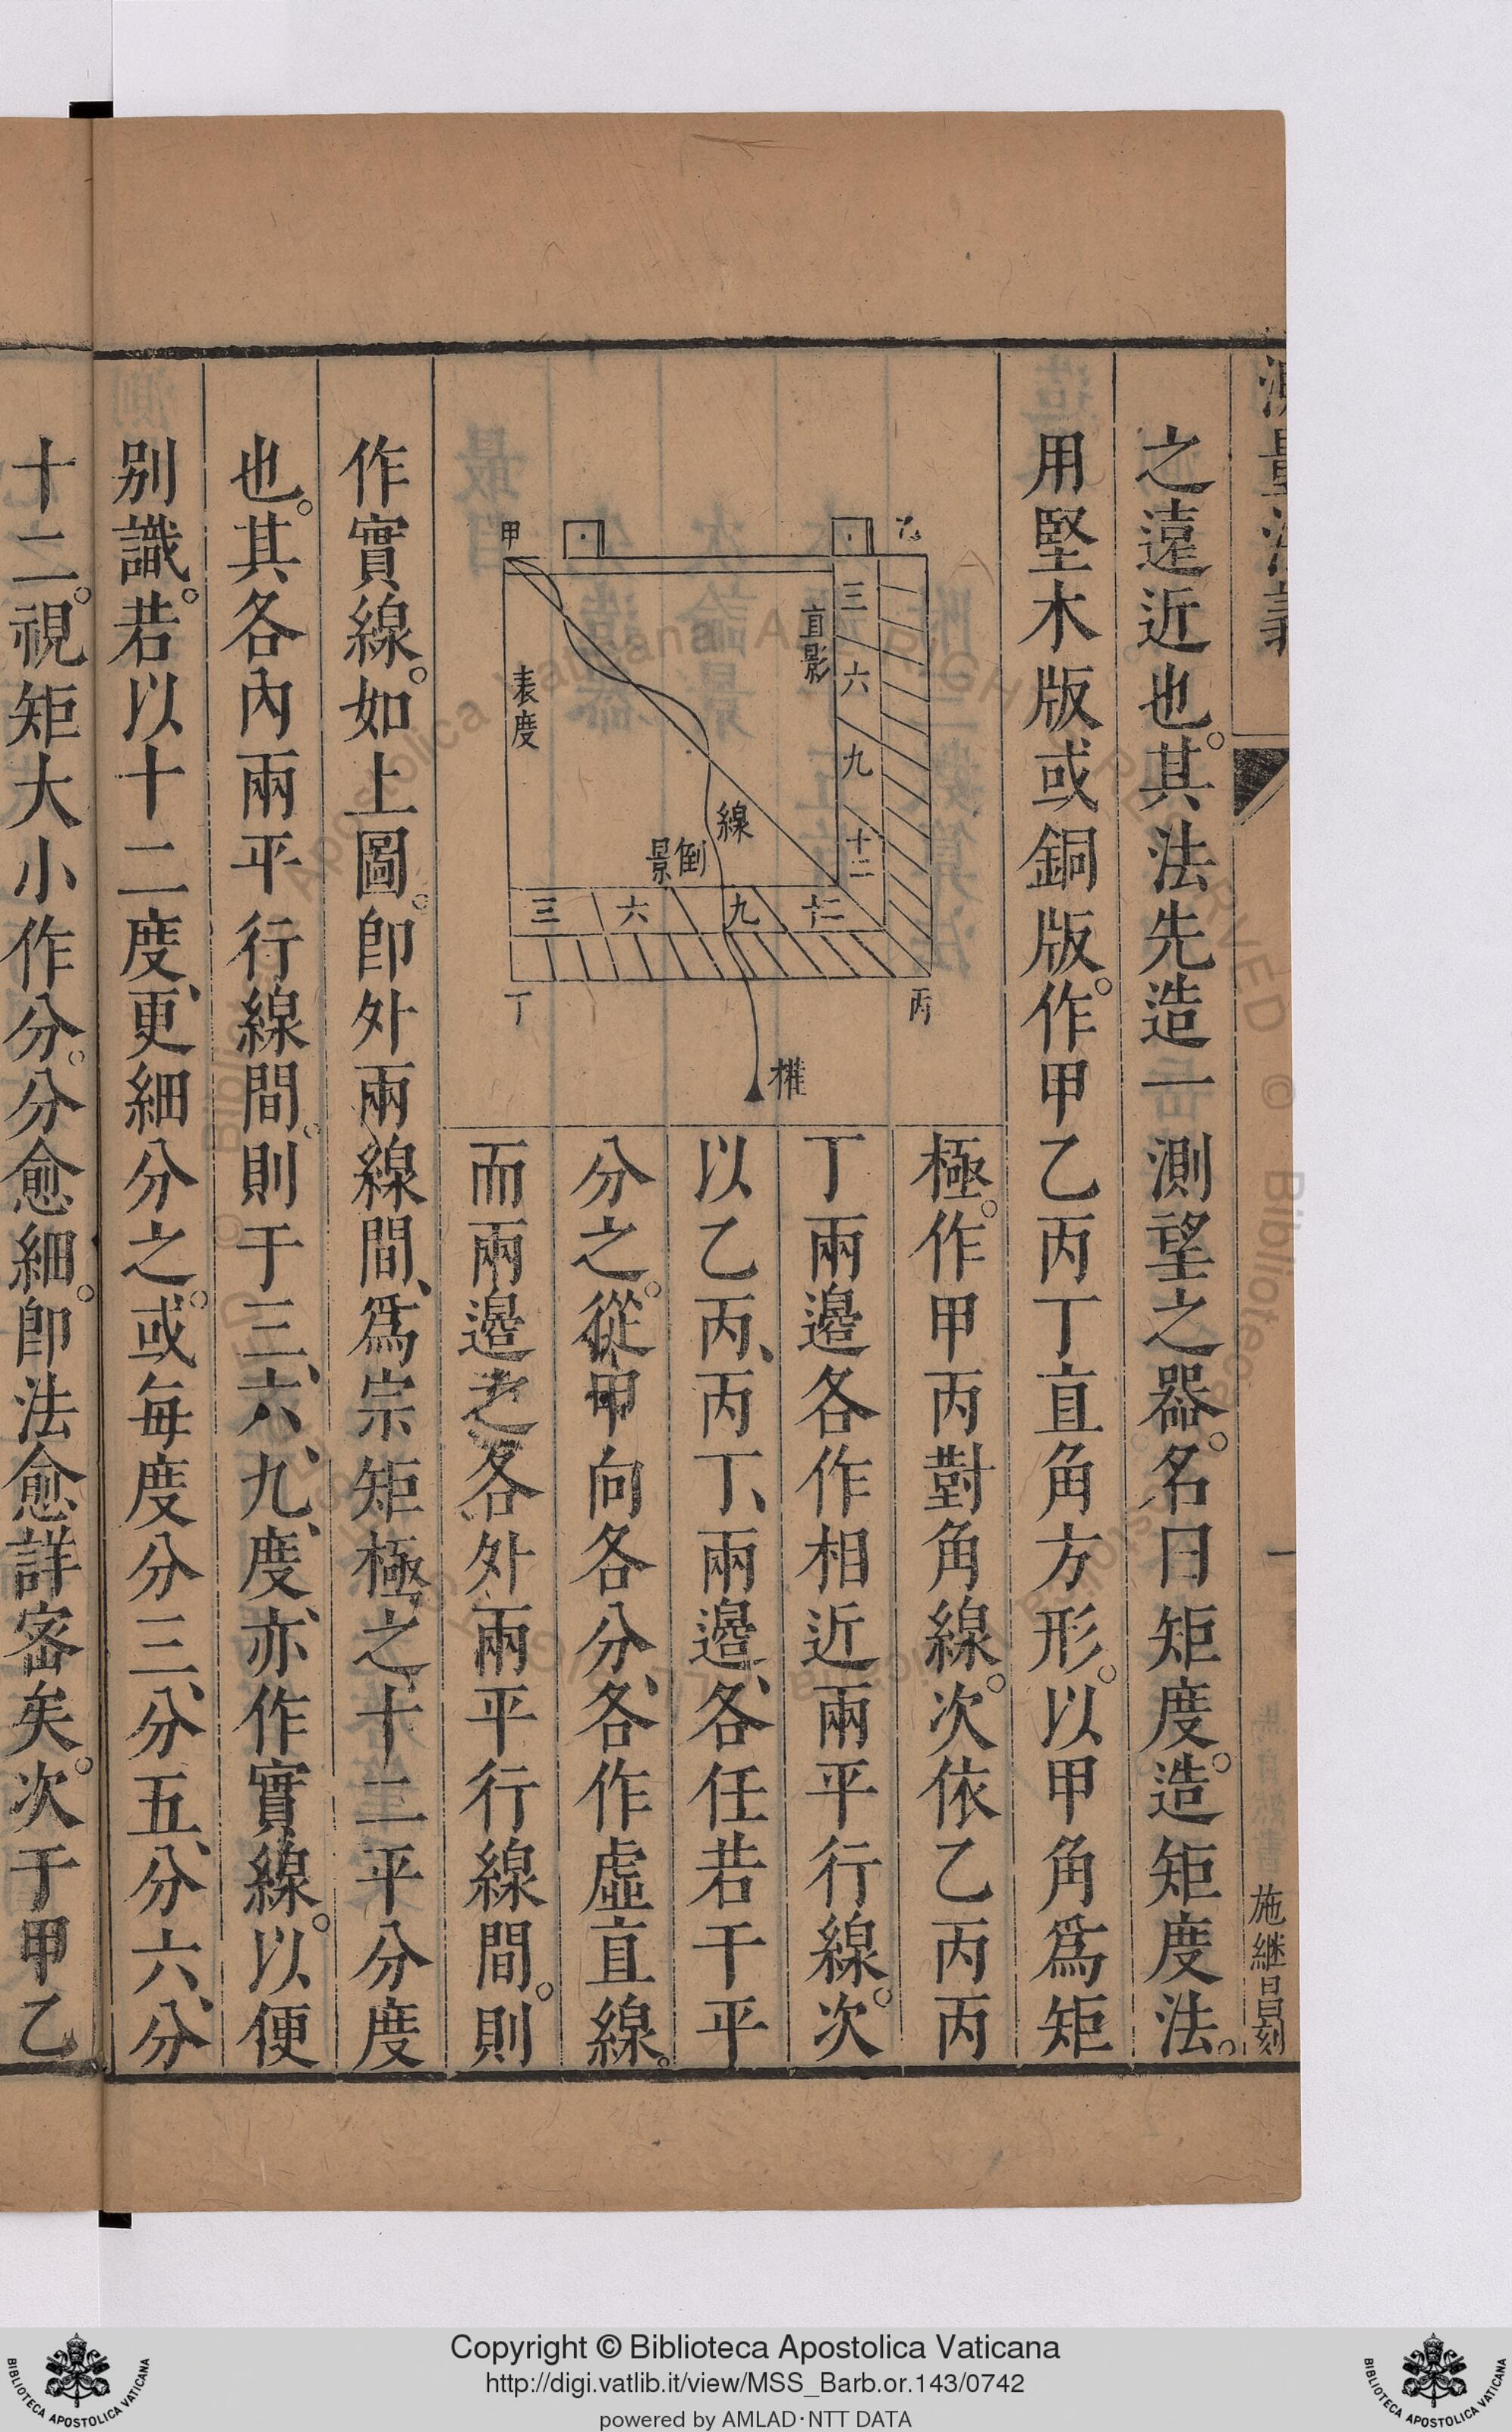 測量法義
一
施継昌刻
之遠近也。其法先造一測望之器。名曰矩度。造矩度法。
用堅木版或銅版。作甲乙丙丁直角方形。以甲角爲矩
極。作甲丙對角線。次依乙丙丙
丁兩邉各作相近兩平行線。次
以乙丙、丙丁、兩邉、各任若干平
分之。從甲向各分、各作虛直線。
而兩邉之各外兩平行線間。則
甲
乙
丙
丁
三
六
九
十二
直影
表度
線
倒景
三
六
九
十二
權
作實線。如上圖。卽外兩線間、爲宗矩極之十二平分度
也。其各內兩平行線間。則于三、六、九、度、亦作實線。以便
別識。若以十二度、更細分之。或每度分三、分五、分六、分
十二。視矩大小作分。分愈細。卽法愈詳密矣。次于甲乙
Copyright © Biblioteca Apostolica Vaticana
http://digi.vatlib.it/view/MSS_Barb.or.143/0742
powered by AMLAD·NTT DATA
BIBLIOTECA APOSTOLICA VATICANA
BIBLIOTECA APOSTOLICA VATICANA